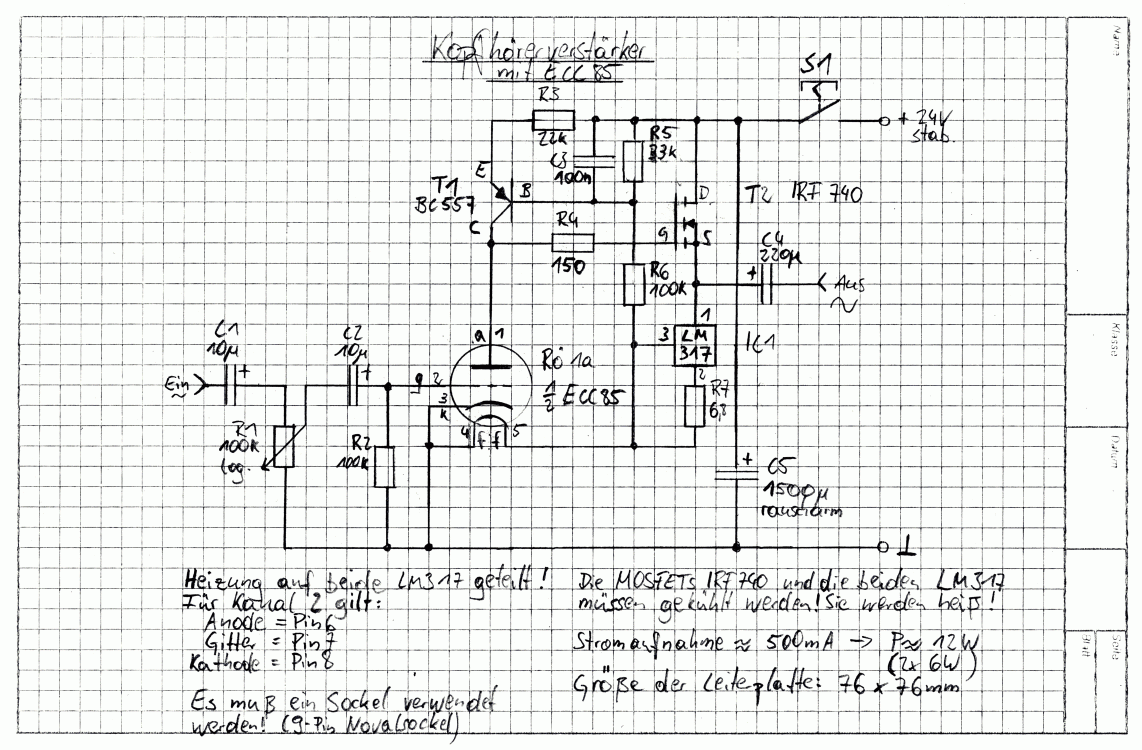 Kopfhörerverstärker
mit ECC 85
S1
R3
22k
+ 24V
stab.
C3
100n
R5
33k
E
T1
BC 557
B
C
D
T2 IRF 740
R4
150
G
S
C4
220µ
+
Aus
R6
100k
1
3
LM
317
IC1
2
R7
6,8
C1
10µ
+
Ein
C2
10µ
+
a 1
Rö 1a
½ ECC 85
g 2
3
k
4
f f
5
R1
100k
log.
R2
100k
+
C5
1500µ
rauscharm
Heizung auf beide LM317 geteilt!
Für Kanal 2 gilt:
Anode = Pin 6
Gitter = Pin 7
Kathode = Pin 8
Es muß ein Sockel verwendet
werden! (9-Pin Novalsockel)
Die MOSFETs IRF 740 und die beiden LM317
müssen gekühlt werden! Sie werden heiß!
Stromaufnahme ≈ 500mA → P ≈ 12W
(2x 6W)
Größe der Leiterplatte: 76 x 76mm
Name
Klasse
Datum
Seite
Blatt